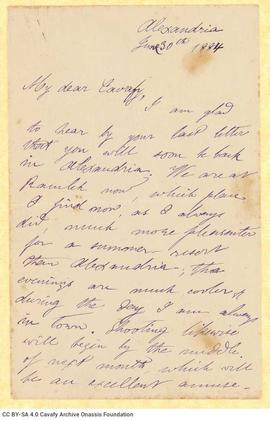 Alexandria
June 30th 1884
My dear Cavafy,
I am glad
to hear by your last letter
that you will soon be back
in Alexandria. We are at
Ramleh now, which place
I find now, as I always
did, much more pleasanter
for a summer resort
than Alexandria; the
evenings are much cooler &
during the day I am always
in town. Shooting likewise
will begin by the middle
of next month, which will
be an excellent amuse-
CC BY-SA 4.0 Cavafy Archive Onassis Foundation